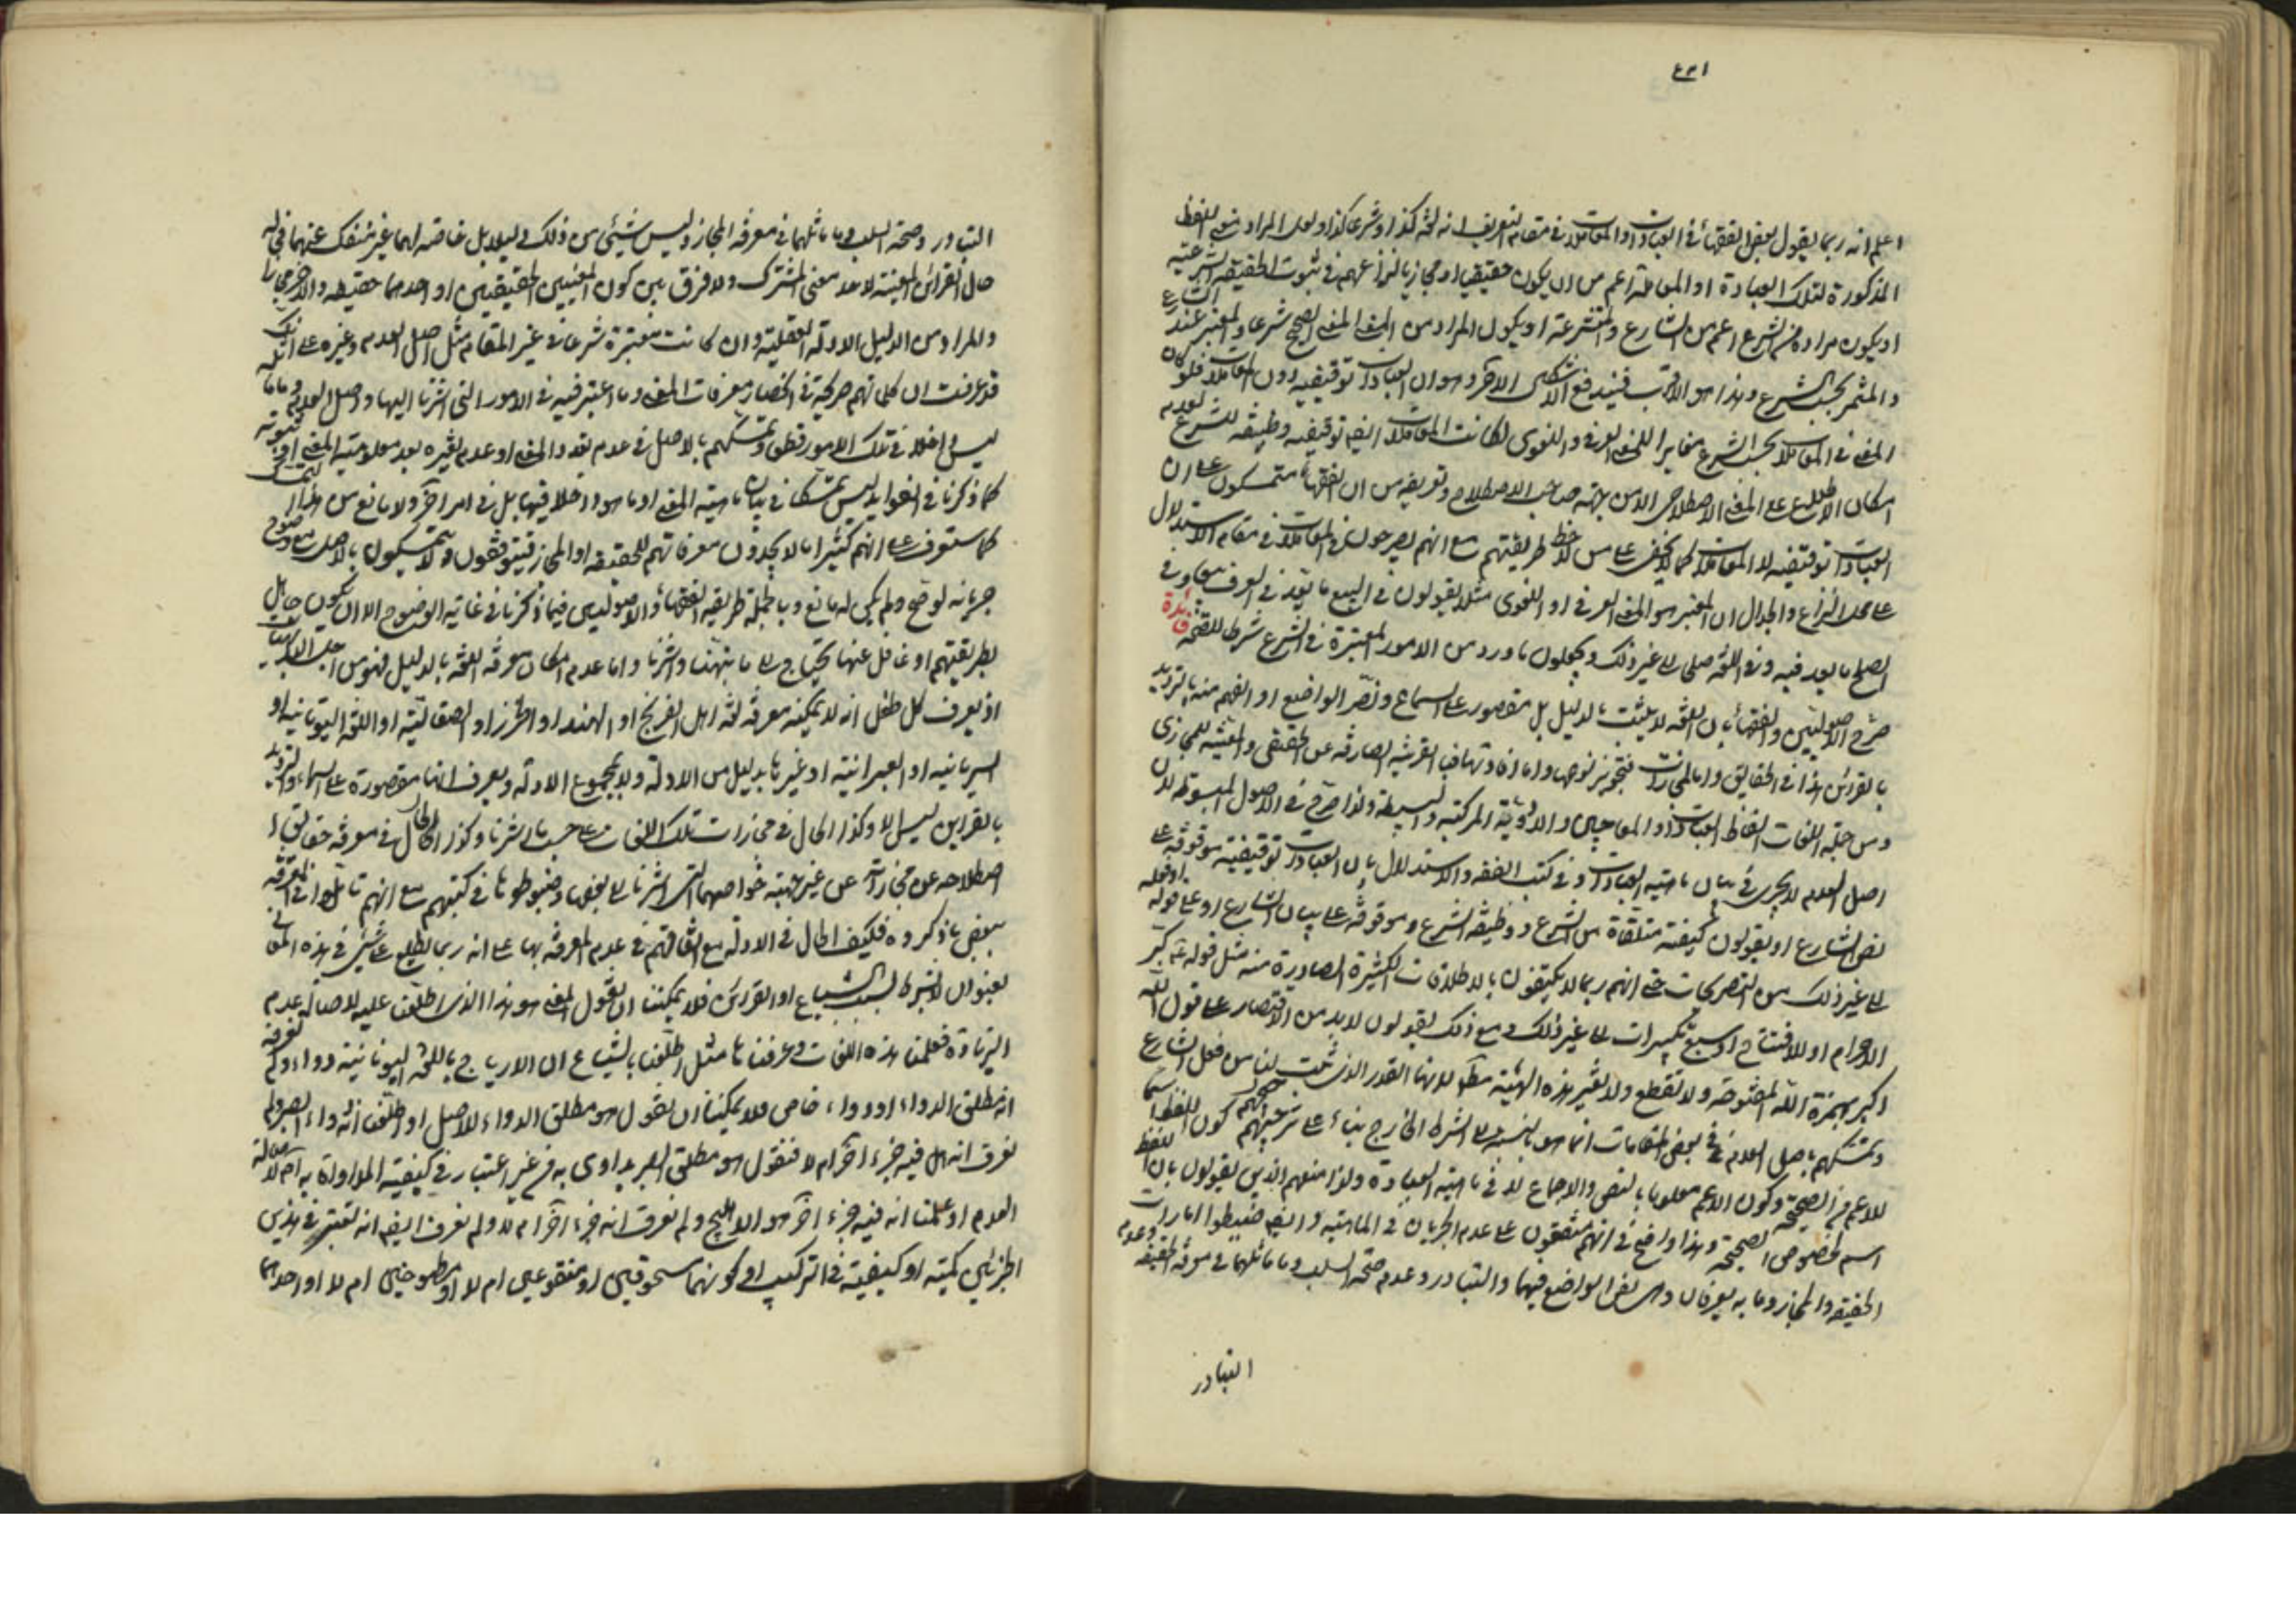 ١٣٤
اعلم انه ربما يقول بعض الفقهاء في العبادات او المعاملات في مقام التعريف انه لغة كذا وشرعا كذا ولعل المراد
المذكورة لتلك العبادة او المعاملة اعم من ان يكون حقيقيا او مجازيا لنزاعهم في ثبوت الحقيقة الشرعية
او يكون مراده من الشرع اعم من الشارع والمتشرعة او يكون المراد من المعنى المعنى الصحيح شرعا والمعتبر عند الشارع
والمثمر بحسب الشرع وهذا هو الاقرب فيندفع الاشكال الآخر وهو ان العبادات توقيفية دون المعاملات فلو كان
المعنى في المعاملات بحسب الشرع مغايرا للمعنى العرفي واللغوي لكانت المعاملات ايضا توقيفية وظيفة للشرع لعدم
امكان الاطلاع على المعنى الاصطلاحي الا من جهة صاحب الاصطلاح وتعريفه من ان الفقهاء متمسكون على ان
العبادات توقيفية لا المعاملات كما لا يخفى على من لاحظ طريقتهم مع انهم يصرحون في المعاملات في مقام الاستدلال
على محل النزاع والجدال ان المعتبر هو المعنى العرفي او اللغوي مثلا يقولون في البيع ما يعد في العرف بيعا وفي
الصلح ما يعد فيه وفي اللغة صلحا الى غير ذلك ويجعلون ما ورد من الامور المعتبرة في الشرع شرطا للصحة
فائدة
صرح الاصوليين والفقهاء بان اللغة لا يثبت بالدليل بل مقصورة على السماع ونص الواضع او الفهم منه بالترديد
بالقرائن هذا في الحقايق واما المجازات فتجويز نوعها واما افادتها فبالقرينة الصارفة عن الحقيقي والمعينة للمجازي
ومن جملة اللغات الفاظ العبادات والمعاجين والادوية المركبة والبسيطة ولذا صرح في الاصول المبسوطة لان
اصل العدم لا يجري في بيان ماهية العبادات وفي كتب الفقه والاستدلال بان العبادات توقيفية موقوفة على
نص الشارع او يقولون كيفية متلقاة من الشرع ووظيفة الشرع وموقوفة على بيان الشارع او على قوله او فعله
الى غير ذلك من التصريحات حتى انهم ربما لا يكتفون بالاطلاقات الكثيرة الصادرة منه مثل قوله ع كبر
الاحرام او للافتتاح او سبع تكبيرات الى غير ذلك ومع ذلك يقولون لابد من الاقتصار على قول الله
اكبر بهمزة الله المفتوحة ولا تقطع ولا تغير هذه الهيئة مطلقا لانها القدر الذي ثبت لنا من فعل الشارع
وتمسكهم باصل العدم في بعض المقامات انما هو بالنسبة الى الشرط الخارج بناء على ترجيحهم كون اللفظ اسما
للاعم من الصحيح وكون الاعم معلوما بالنص والاجماع لا في ماهية العبادة ولذا منهم الذين يقولون بان اللفظ
اسم لخصوص الصحيحة وهذا واضح في انهم متفقون على عدم الجريان في الماهية وايضا ضبطوا امارات
الحقيقة والمجاز وما به يعرفان وهي نص الواضع فيهما والتبادر وعدم صحة السلب وما ماثلهما في معرفة الحقيقة وعدم
التبادر
التبادر وصحة السلب وما ماثلهما في معرفة المجاز وليس شيئي من ذلك دليلا بل خاصة لهما غير منفك عنهما
حال القرائن المعينة لاحد معنى المشترك ولا فرق بين كون المعنيين الحقيقيين او احدهما حقيقة والآخر مجازا
والمراد من الدليل الادلة العقلية وان كانت معتبرة شرعا في غير المقام مثل اصل العدم وغيره على انك
قد عرفت ان كلماتهم صريحة في انحصار معرفات المعنى وما اعتبر فيه في الامور التي اشرنا اليها واصل العدم وما ماثله
ليس داخلا في تلك الامور قطعا وتمسكهم بالاصل في عدم تعدد المعنى او عدم تغيره بعد معلومية المعنى وثبوته
كما ذكرنا في الفوايد ليس تمسكا في بيان ماهية المعنى او ما هو داخلا فيها بل في امر آخر ولا مانع من التمسك
كما ستعرف على انهم كثيرا ما لا يجدون معرفاتهم للحقيقة او المجاز فيتوقفون ولا يتمسكون بالاصل مع وضوح
جريانه لو صح ولم يكن له مانع وبالجملة طريقة الفقهاء والاصوليين فيما ذكرنا في غاية الوضوح الا ان يكون جاهل
بطريقتهم او غافل عنها يحتاج الى ما نبهنا واشرنا واما عدم امكان معرفة اللغة بالدليل فهو من اجلى البديهيات
اذ يعرف كل طفل انه لا يمكنه معرفة لغة اهل الفرنج او الهند او الخزر او الصقالبة او اللغة اليونانية او
السريانية او العبرانية او غيرها بدليل من الادلة ولا بمجموع الادلة ويعرف انها مقصورة على السماع والترديد
بالقراين ليس الا وكذا الحال في مجازات تلك اللغات على حسب ما اشرنا وكذا الحال في معرفة حقايق
اصطلاحه عن مجازاته عن غير جهة خواصهما التي اشرنا الى بعضها وضبطوها في كتبهم مع انهم تاملوا في المعرفة
ببعض ما ذكروه فكيف الحال في الادلة مع اتفاقهم في عدم المعرفة بها على انه ربما نطلع على شيئ في هذه المعاني
بعنوان لا بشرط بسبب الشياع او القرائن فلا يمكننا ان نقول المعنى هو هذا الذي اطلعنا عليه لاصالة عدم
الزيادة فعلمنا هذه اللغات وعرفناها مثل اطلعنا بالشياع ان الاريارج باللغة اليونانية دواء ولم نعرفه
انه مطلق الدواء او دواء خاص فلا يمكننا ان نقول هو مطلق الدواء للاصل او اطلعنا انه دواء البصر ولم
نعرف انه هل فيه جزء آخر ام لا فنقول هو مطلق البصر يداوى به من غير اعتبار في كيفية المداواة به ام لا لاصالة
العدم او علمنا انه فيه جزء آخر هو الاهليلج ولم نعرف انه جزء آخر ام لا ولم نعرف ايضا انه تعتبر في هذين
الجزئين كمية او كيفية في التركيب او كونهما مسحوقين او منقوعين ام لا او مطبوخين ام لا او احدهما